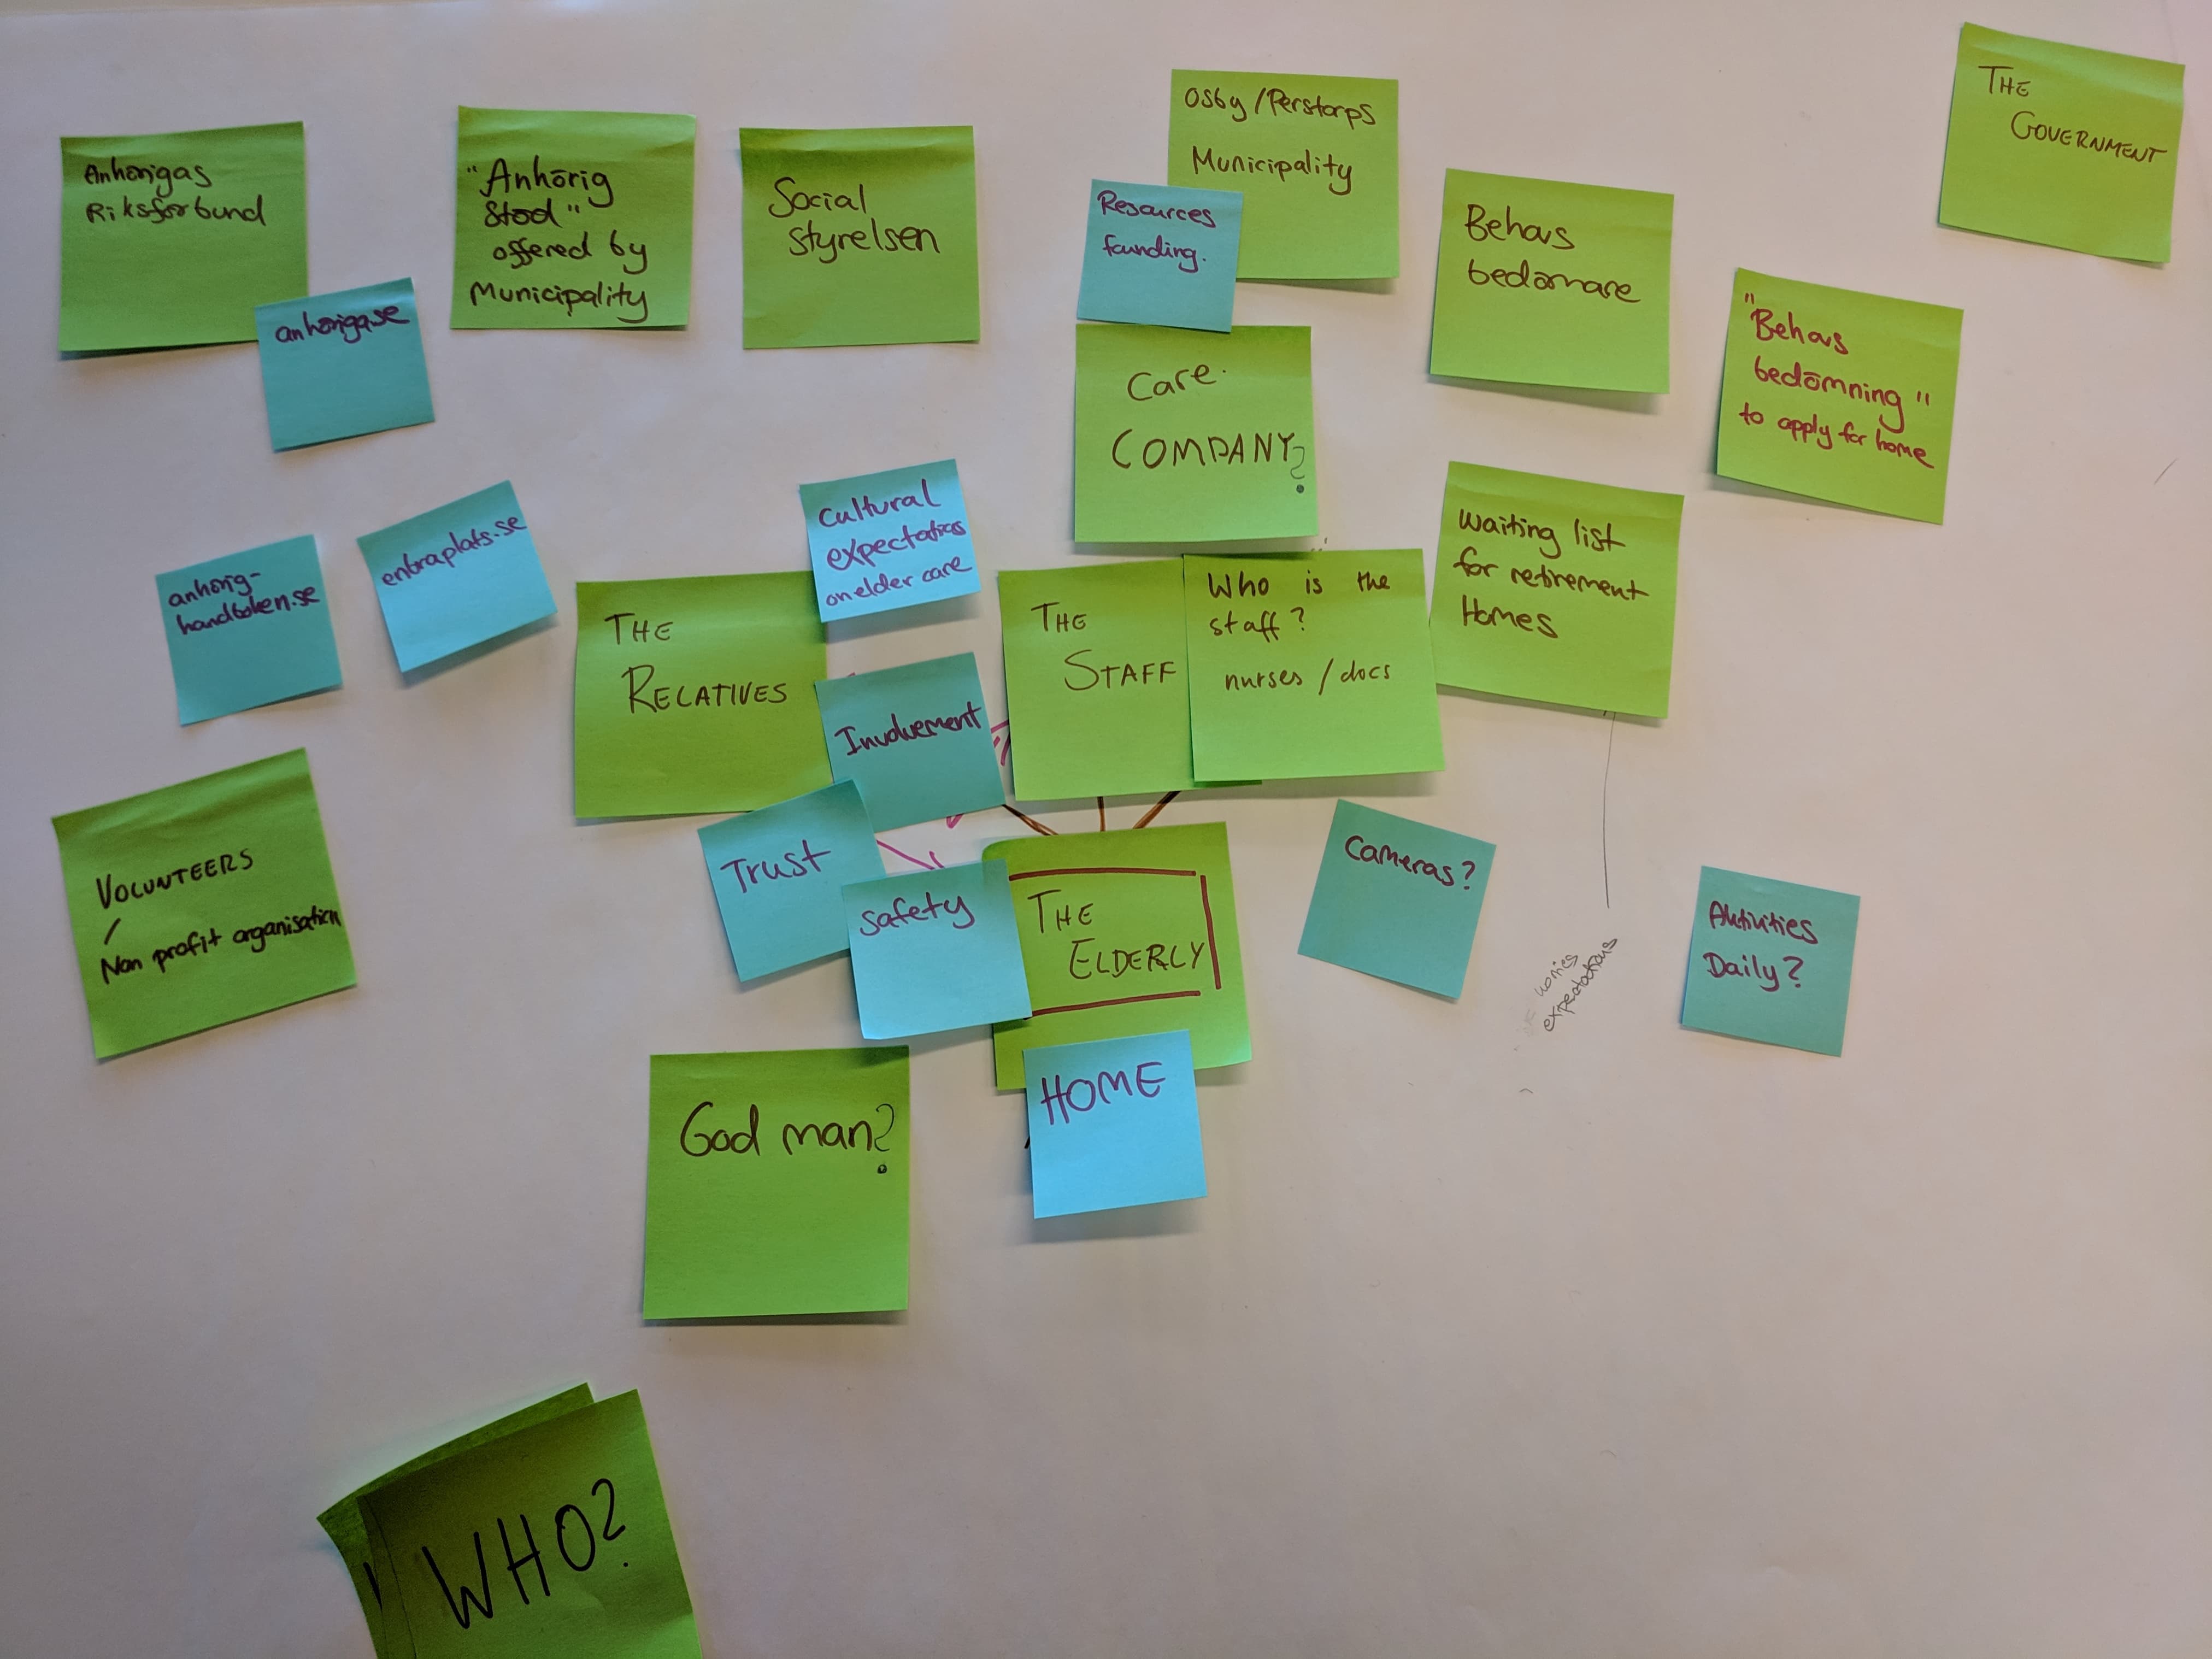 Anhörigas
Riksförbund
anhöriga.se
"Anhörig
Stöd"
offered by
Municipality
Social
styrelsen
Osby / Perstorps
Municipality
Resources
funding.
Care
COMPANY?
Behovs
bedömare
"Behovs
bedömning"
to apply for home
THE
GOVERNMENT
anhörig-
handboken.se
enbraplats.se
Cultural
expectations
on elder care
THE
RELATIVES
Involvement
THE
STAFF
Who is the
staff?
nurses / docs
waiting list
for retirement
Homes
VOLUNTEERS
/
Non profit organisation
Trust
Safety
THE
ELDERLY
Cameras?
worries
expectations
Aktivities
Daily?
God man?
HOME
WHO?